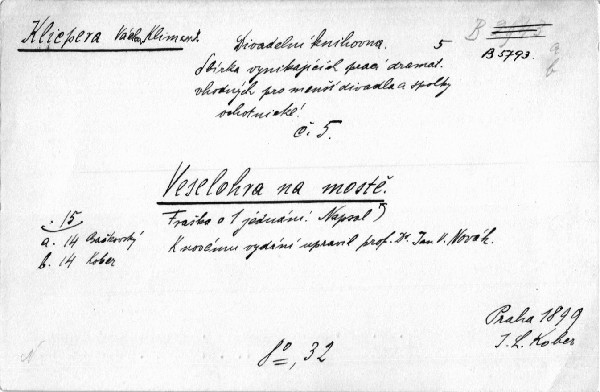 Klicpera Václav Kliment.
Divadelní knihovna. 5
B 5793.
a
b
Sbírka vynikajících prací dramat.
vhodných pro menší divadla a spolky
ochotnické!
č. 5.
Veselohra na mostě.
Fraška o 1 jednání. Napsal
K novému vydání upravil prof. Dr. Jan V. Novák.
15
a. 14 Bačkovský
b. 14 Kober
Praha 1899
I. L. Kober
8°, 32